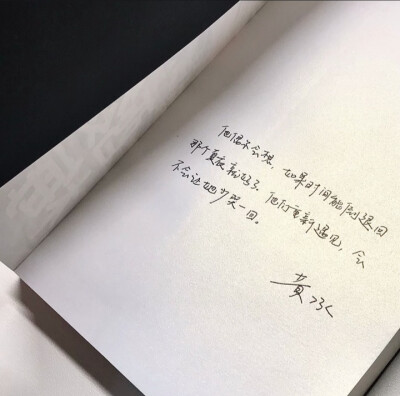 他偶尔会想，如果时间能倒退回
那个夏夜就好了，他们重新遇见，会
不会让她少哭一回。
黄